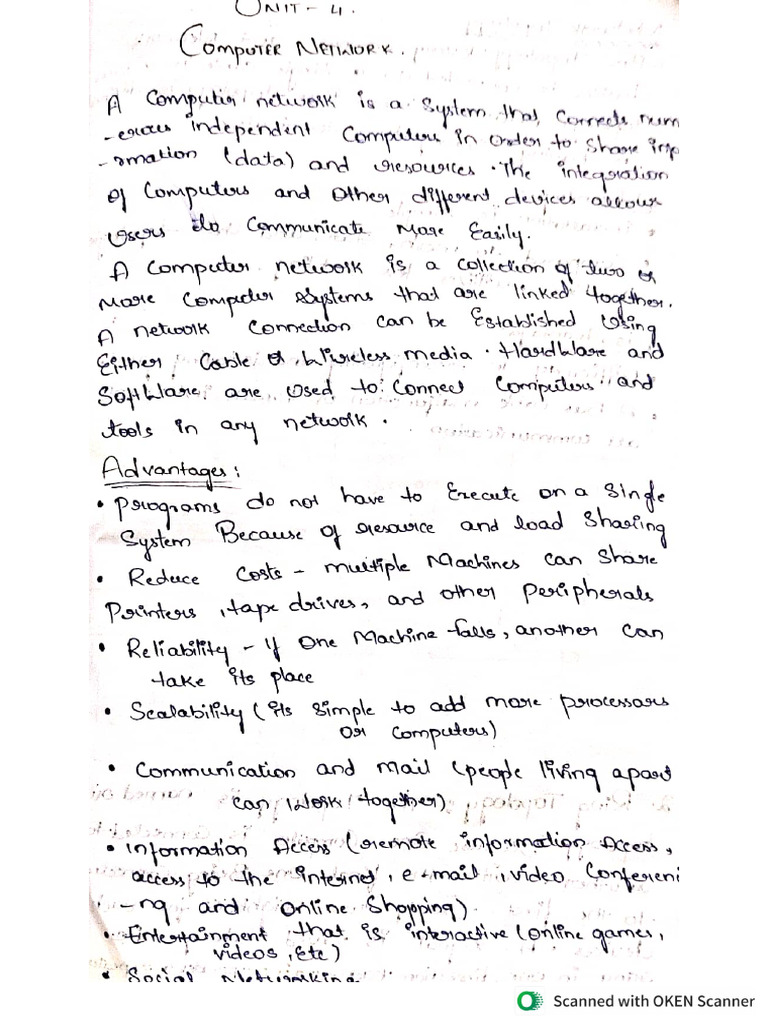 UNIT - 4.
COMPUTER NETWORK.
A Computer network is a System that Connects num
-erous independent Computers in order to Share inf
-ormation (data) and resources. The integration
of Computers and Other different devices allows
Users to Communicate More Easily.
A Computer network is a Collection of two or
More Computer Systems that are linked together.
A network Connection Can be Established Using
Either Cable or Wireless media. Hardware and
Software are Used to Connect Computers and
tools in any network.
Advantages:
• Programs do not have to Execute on a Single
System Because of resource and load Sharing
• Reduce Costs - multiple Machines Can Share
Printers, tape drives, and other Peripherals
• Reliability - If One Machine falls, another Can
take its place
• Scalability (its Simple to add more processors
Or Computers)
• Communication and Mail (people living apart
Can Work together)
• Information Access (remote information Access,
access to the internet, e-mail, video Conferenci
-ng and Online Shopping).
• Entertainment that is interactive (Online games,
videos, Etc)
• Social Networking
Scanned with OKEN Scanner